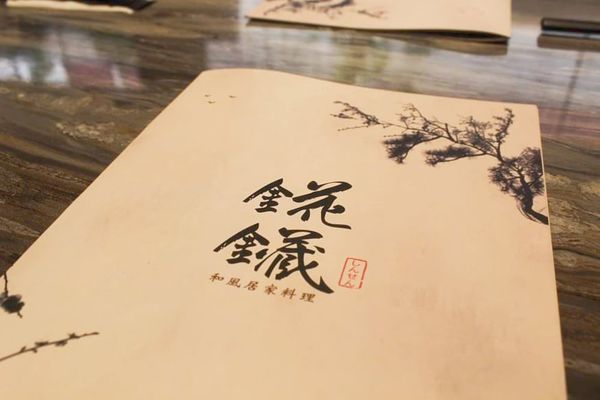 錵
鑶
しんせん
和風居家料理